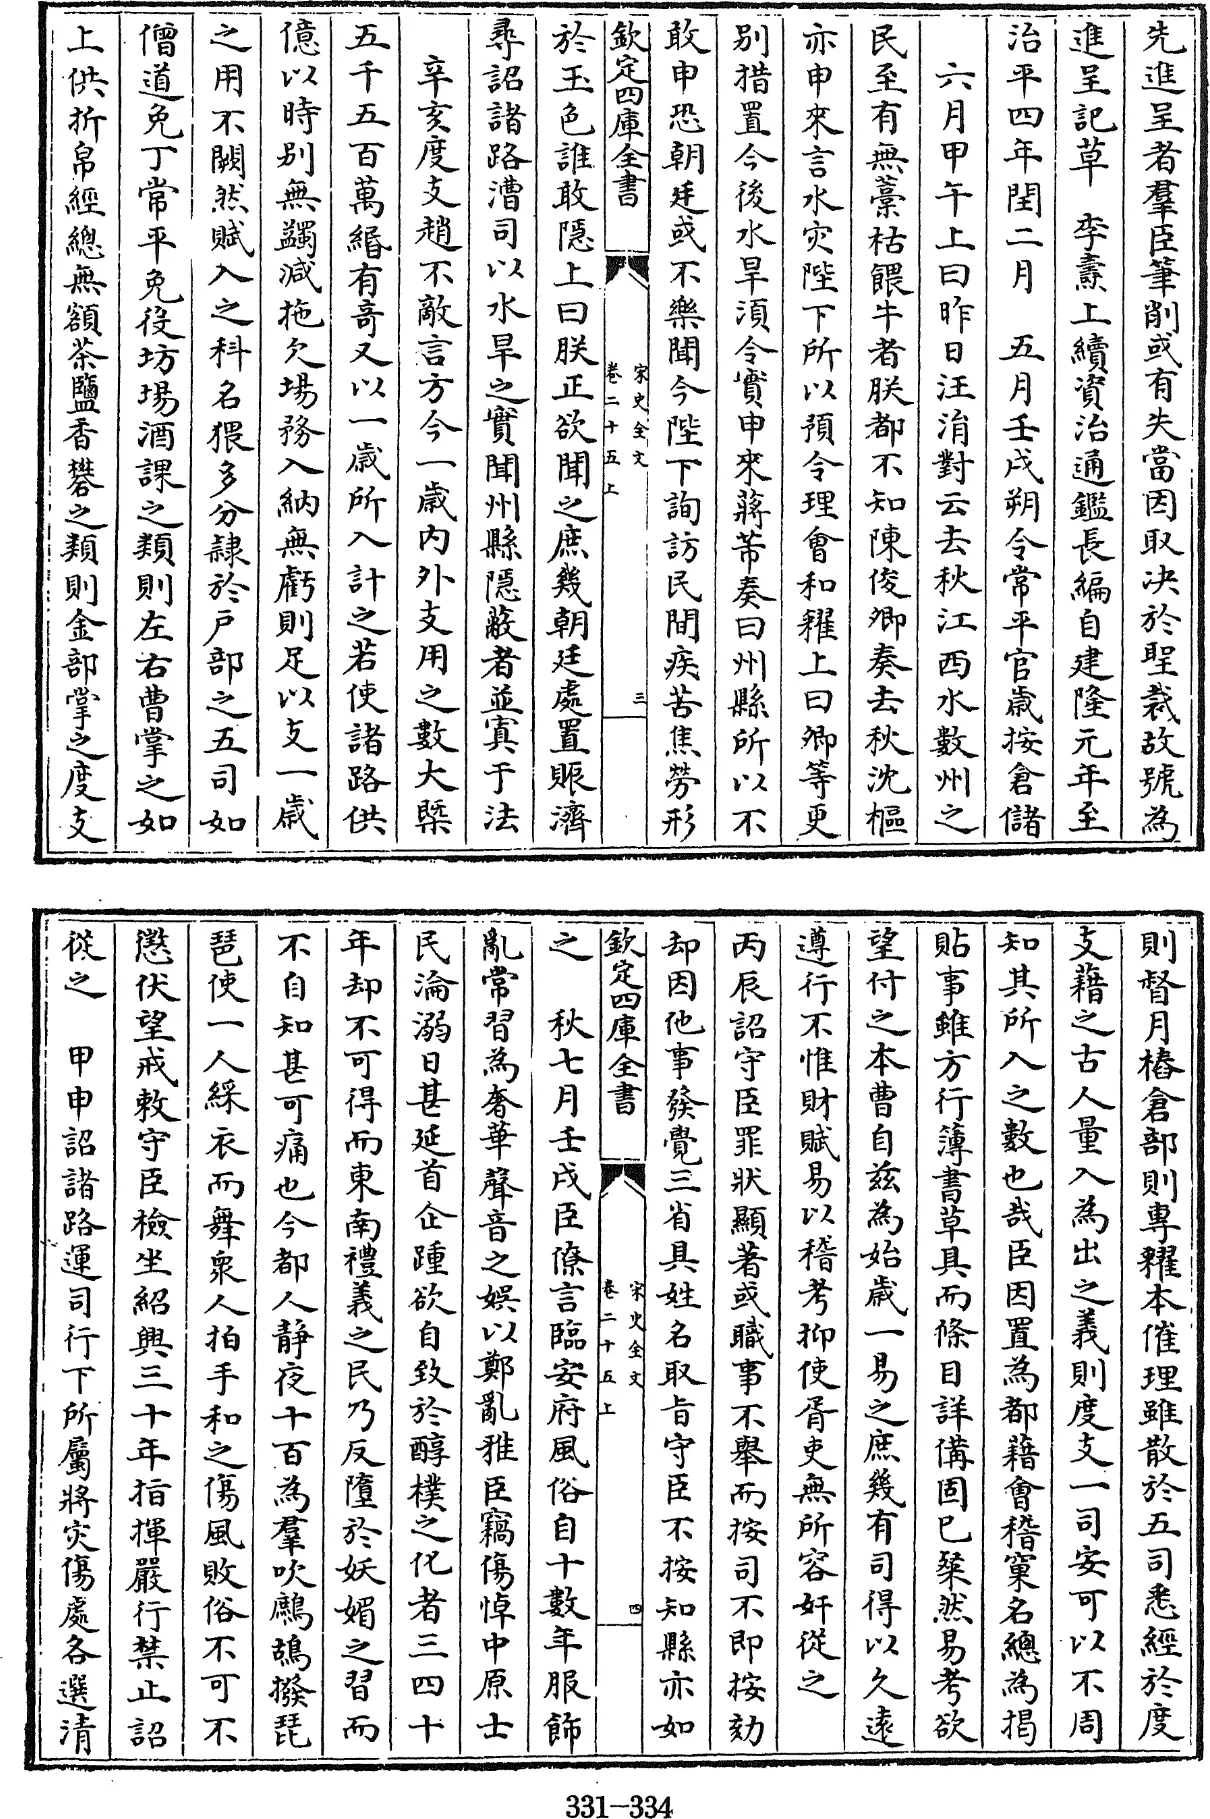 先進呈者羣臣筆削或有失當因取决於聖裁故號為
進呈記草　李燾上續資治通鑑長編自建隆元年至
治平四年閏二月　五月壬戌朔令常平官歲按倉儲
六月甲午上曰昨日汪涓對云去秋江西水數州之
民至有無藁枯餵牛者朕都不知陳俊卿奏去秋沈樞
亦申來言水灾陛下所以預令理會和糴上曰卿等更
别措置今後水旱須令實申來蔣芾奏曰州縣所以不
敢申恐朝廷或不樂聞今陛下詢訪民間疾苦焦勞形
欽定四庫全書　宋史全文　卷二十五上　三
於玉色誰敢隠上曰朕正欲聞之庶幾朝廷處置賑濟
尋詔諸路漕司以水旱之實聞州縣隠蔽者並寘于法
辛亥度支趙不敵言方今一歲内外支用之數大槩
五千五百萬緡有奇又以一歲所入計之若使諸路供
億以時别無蠲減拖欠場務入納無虧則足以支一歲
之用不闕然賦入之科名猥多分隸於戸部之五司如
僧道免丁常平免役坊場酒課之類則左右曹掌之如
上供折帛經總無額茶鹽香礬之類則金部掌之度支
則督月樁倉部則專糴本催理雖散於五司悉經於度
支藉之古人量入為出之義則度支一司安可以不周
知其所入之數也哉臣因置為都藉會稽窠名總為揭
貼事雖方行簿書草具而條目詳備固已粲然易考欲
望付之本曹自兹為始歲一易之庶幾有司得以久遠
遵行不惟財賦易以稽考抑使胥吏無所容奸從之
丙辰詔守臣罪狀顯著或職事不舉而按司不即按劾
却因他事發覺三省具姓名取旨守臣不按知縣亦如
欽定四庫全書　宋史全文　卷二十五上　四
之　秋七月壬戌臣僚言臨安府風俗自十數年服飾
亂常習為奢華聲音之娱以鄭亂雅臣竊傷悼中原士
民淪溺日甚延首企踵欲自致於醇樸之化者三四十
年却不可得而東南禮義之民乃反墮於妖媚之習而
不自知甚可痛也今都人静夜十百為羣吹鷓鴣撥琵
琶使一人綵衣而舞衆人拍手和之傷風敗俗不可不
懲伏望戒敕守臣檢坐紹興三十年指揮嚴行禁止詔
從之　甲申詔諸路運司行下所屬將灾傷處各選清
331-334